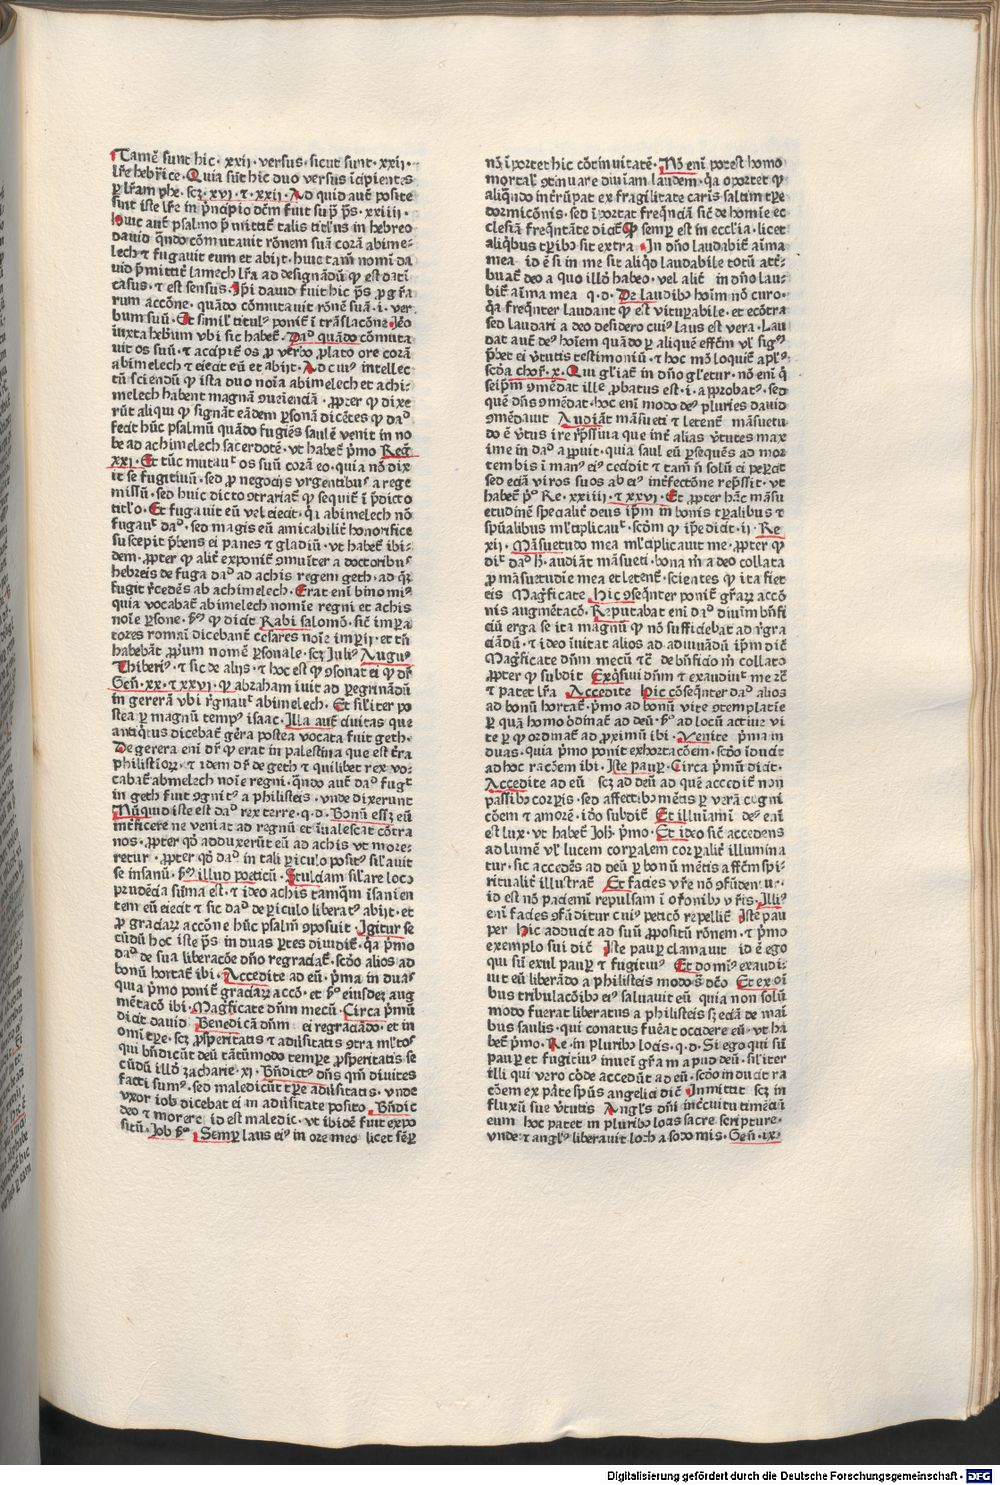 Tamē sunt hic· xxij· versus· sicut sunt· xxij·
lr̄e hebr̄ice· Quia sūt hic duo versus īcipientes
ꝑ lr̄am phe· scꝫ· xvi· ⁊· xxij· Ad quid aut̄ posite
sunt iste lr̄e in p̄ncipio dc̄m fuit sup̄ p̄s· xxiiij·
huic aut̄ psalmo p̄mittit̄ talis titl'us in hebreo
dauid qn̄do cōmutauit rōnem suā corā abime-
lech ⁊ fugauit eum et abijt· huic tam̄ nomi da
uid p̄mittit̄ lamech lr̄a ad designādū ꝙ est dati
casus· ⁊ est sensus· Ip̄i dauid fuit hic p̄s ꝓ gr̄a
rum accōne· quādo cōmutauit rōnē suā· i· ver
bum suū· Et simil' titul' ponit̄ ī trāslacōne Jeo
iuxta hebr̄um vbi sic habet̄· Dad quādo cōmuta
uit os suū· ⁊ accipit̄ os ꝓ verbo ꝓlato ore corā
abimelech ⁊ eiecit eū et abijt· Ad cui' intellec
tū sciendū ꝙ ista duo noīa abimelech et achi-
melech habent magnā ꝯueniencīā· ꝓpter ꝙ dixe
rūt aliqui ꝙ signāt eādem ꝑsonā dicētes ꝙ dad
fecit hūc psalmū quādo fugiēs saulē venit in no
be ad achimelech sacerdotē· vt habet̄ p̄mo Reg
xxi· Et tūc mutaut os suū corā eo· quia nō dix
it se fugitiuū· sed ꝓ negocijs vrgentibus a rege
missū· sed huic dicto ꝯtrariat̄ ꝙ sequit̄ ī p̄dicto
titl'o· Et fugauit eū vel eiecit· qr̄ abimelech nō
fugaut dad· sed magis eū amicabilit̄ honorifice
suscepit p̄bens ei panes ⁊ gladiū· vt habet̄ ibi-
dem· ꝓpter ꝙ alit̄ exponit̄ ꝯmunit̄ a doctoribus
hebreis de fuga dad ad achis regem geth· ad qꝫ
fugit r̄cedēs ab achimelech· Erat eni bino mi'
quia vocabat̄ abimelech nomīe regni et achis
noīe ꝑsone· ꝙ dicit Rabi salomō· sic̄ impa
tores romani dicebant̄ cesares noīe imperij· et tn̄
habebāt ꝓprium nomē ꝑsonale· scꝫ Juli' August'
Thiberi'· ⁊ sic de alijs· ⁊ hoc est ꝙ ꝯsonat ei ꝙ dr̄
Gen̄· xx· ⁊ xxvi· ꝙ abraham iuit ad ꝑegrinādū
in gererā vbi r̄gnaut abimelech· Et sil'iter po
stea ꝑ magnū temp' isaac· Illa aut̄ ciuitas que
antiqt' dicebat̄ gēra postea vocata fuit geth·
De gerera eni dr̄ ꝙ erat in palestina que est tr̄a
philistiorꝝ· ⁊ idem dr̄ de geth ⁊ quilibet rex vo-
cabat̄ abmelech noīe regni· qn̄do aut̄ dad fugt
in geth fuit ꝯgnit' a philisteis· vnde dixerunt
Nūquid iste est dad rex terre· q· d· Bonū essꝫ eū
intficere ne veniat ad regnū et īualescat cōtra
nos· ꝓpter qd̄ adduxerūt eū ad achis vt more-
retur· ꝓpter qd̄ dad in tali piculo posit' sil'auit
se insanū· illud poeticū· Stulciam sil'are loco
prudēcia sūma est· ⁊ ideo achis tamqm̄ īsanien
tem eū eiecit ⁊ sic dad de ꝑiculo liberat' abijt· et
ꝓ graciarꝝ accōne hūc psalm̄ ꝯposuit· Igitur se
cūdū hoc iste p̄s in duas ꝑtes diuidit̄· qa p̄mo
dad de sua liberacōe dn̄o regraciat̄· scd̄o alios ad
bonū hortat̄ ibi· Accedite ad eū· p̄ma in duas
quia p̄mo ponit̄ graciarꝝ accō· et eiusdeꝫ aug
mētacō ibi· Magnificate dn̄m mecū· Circa p̄mū
dicit dauid Benedicā dn̄m ei regraciādo· et in
omī tꝑe· scꝫ ꝓsperitatis ⁊ aduersitatis ꝯtra ml'tos
qui bn̄dicūt deū tātūmodo tempꝑe ꝓsperitatis se
cūdū illō zacharie· xi· Bn̄dict' dn̄s qm̄ diuites
facti sum'· sed maledicūt tꝑe aduersitatis· vnde
vxor iob dicebat ei in aduersitate posito· Bn̄dic
deo ⁊ morere id est maledic· vt ibidē fuit expo
situ̅· Job Semꝑ laus ei' in ore meo licet sēꝑ
nō īportet hic cōtinuitatē· Nō eni potest homo
mortal' ꝯtinuare diuīam laudem· qa oportet ꝙ
aliqn̄do intr̄rūpat ex fragilitate carīs saltim tꝑe
dormicōnis· sed īportat freqn̄ciā sic̄ de homīe ec
clesiā freqn̄tāte dicit̄ ꝙ semꝑ est in eccl'ia· licet
aliqbus tꝑibo sit extra· In dn̄o laudabit̄ aīma
mea id ē si in me sit aliqd laudabile totū att̄ri-
buat̄ deo a quo illd̄ habeo· vel alit̄ in dn̄o lau-
bit̄ aīma mea q· d· De laudibo hoīm nō curo·
qa freqn̄ter laudant ꝙ est vituꝑabile· et ecōtra
sed laudari a deo desidero cui' laus est vera· Lau
dat aut̄ de' hoīem quādo ꝑ aliquē effc̄m vl' sig'
p̄bet ei v̄tutis testimoniū· ⁊ hoc mō loquit̄ apl'
scd̄a chor̄· x· Qui gl'iat̄ in dn̄o gl'etur· nō eni q̄
seip̄m ꝯmēdat ille ꝓbatus est· i· aꝓrobat'· sed
quē dn̄s ꝯmēdat· hoc eni modo de' pluries dauid
ꝯmēdauit Audiāt māsueti ⁊ letent̄ māsuetu
do ē v̄tus ire rep̄ssiua que int̄ alias v̄tutes max
ime in dad aꝑuit· quia saul eū ꝑsequēs ad mor
tem bis ī man' ei' cecidit ⁊ tam̄ n̄ solū ei peꝑcit
sed eciā viros suos ab ei' intfectōne rep̄ssit· vt
habet̄ Re· xxiiij· ⁊ xxvi· Et ꝓpter hāc māsu
etudinē specialit̄ deus ip̄m in bonis tꝑalibus ⁊
spūalibus ml'tiplicaut· scd̄m ꝙ ip̄e dicit· ij· Re
xij· Māsuetudo mea ml'tiplicauit me· ꝓpter ꝙ
dic̄ dad audiāt māsueti· bona m̄ a deo collata
ꝓ māsuetudīe mea et letent̄· scientes ꝙ ita fiet
eis Magnificate hic ꝯseqn̄ter ponit̄ gr̄arꝝ accō
nis augmētacō· Reputabat eni dad diuīm bn̄fi
ciū erga se ita magnū ꝙ nō sufficiebat ad r̄gra
ciādū· ⁊ ideo īuitat alios ad adiuuādū ip̄m dic̄
Magnificate dn̄m mecū ⁊c̄ de bn̄ficio m̄ collato
ꝓpter ꝙ subdit Exqsiui dn̄m ⁊ exaudiut me ⁊c̄
⁊ patet lr̄a Accedite hic cōseqn̄ter dad alios
ad bonū hortat̄· p̄mo ad bonū vite ꝯtemplatie
ꝑ quā homo ōdinat̄ ad deū· ad locū actiue vi
te ꝑ ꝙ ordinat̄ ad ꝓximū ibi· Venite p̄ma in
duas· quia p̄mo ponit exhortacōem· scd̄o īducit
ad hoc racōem ibi· Iste paup· Circa p̄mū dicit·
Accedite ad eū scꝫ ad deū ad quē accedit̄ non
passibo corꝑis· sed affectibo mētis ꝑ verā cogni
cōem ⁊ amorē· idō subdit̄ Et illuīamī de' eni
est lux· vt habet̄ Joh̄ p̄mo· Et ideo sic̄ accedens
ad lumē vl' lucem corꝑalem corꝑalit̄ illumina
tur· sic accedēs ad deū ꝑ bonū mētis affc̄m spi-
ritualit̄ illustrat̄ Et facies vr̄e nō ꝯfūdent̄ur·
id est nō paciemi repulsam ī ofonibo vr̄is· Illi'
eni facies ꝯfūditur cui' peticō repellit̄ Iste pau
per hic adducit ad suū ꝓpositū rōnem· ⁊ p̄mo
exemplo sui dic̄ Iste paup̄ clamauit id ē ego
qui sū exul paup̄ ⁊ fugitiu' Et domi' exaudi-
uit eū liberādo a philisteis modo s' dc̄o Et ex oī
bus tribulacōibo ei' saluauit eū quia non solū
modo fuerat liberatus a philisteis sꝫ eciā de mai
bus saulis· qui conatus fuerat occidere eū· vt ha
bet̄ p̄mo· Re· in pluribo locis· q· d· Si ego qui sū
paup̄ et fugitiu' inuei gr̄am apud deū· sil'iter
illi qui vero cōrde accedūt ad eū· scd̄o inducit ra
cōem ex pāte spūs angelici dic̄ Inmittit scꝫ in
fluxū sue v̄tutis Angl's dn̄i in circuitu timēciū
eum hoc patet in pluribo locis sacre scripture·
vnde ⁊ angl's liberauit loth a sodomis· Gen̄· ix·
Digitalisierung gefördert durch die Deutsche Forschungsgemeinschaft - DFG